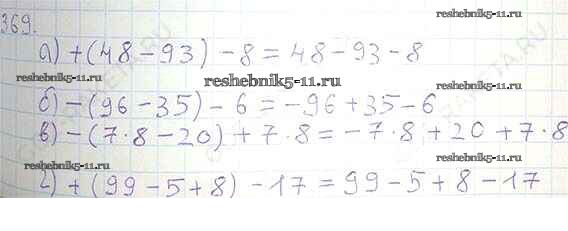 369.
reshebnik5-11.ru
а) +(48-93)-8=48-93-8
reshebnik5-11.ru
б) -(96-35)-6=-96+35-6
reshebnik5-11.ru
в) -(7·8-20)+7·8=-7·8+20+7·8
reshebnik5-11.ru
reshebnik5-11.ru
г) +(99-5+8)-17=99-5+8-17